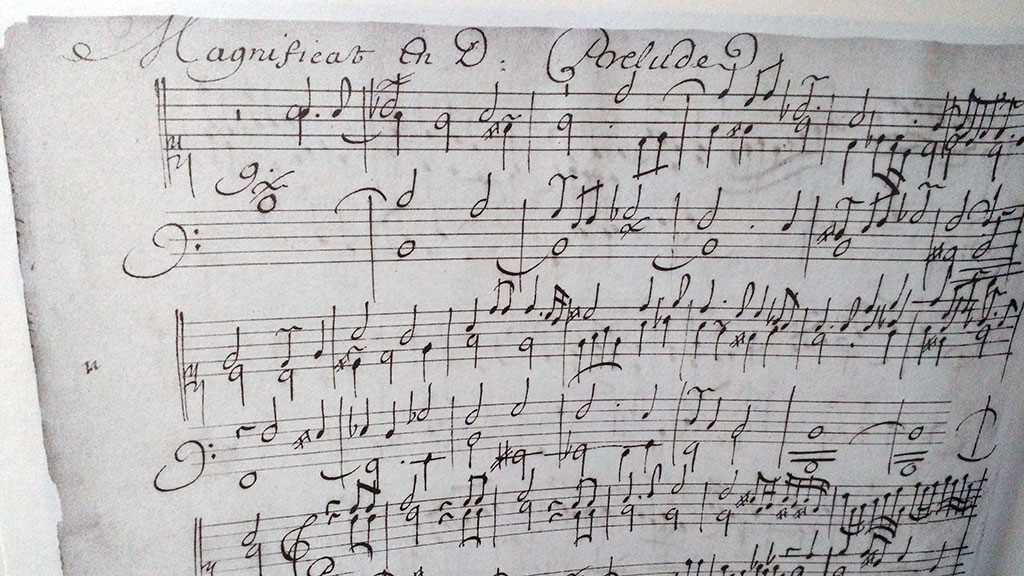 Magnificat En D. Prelude